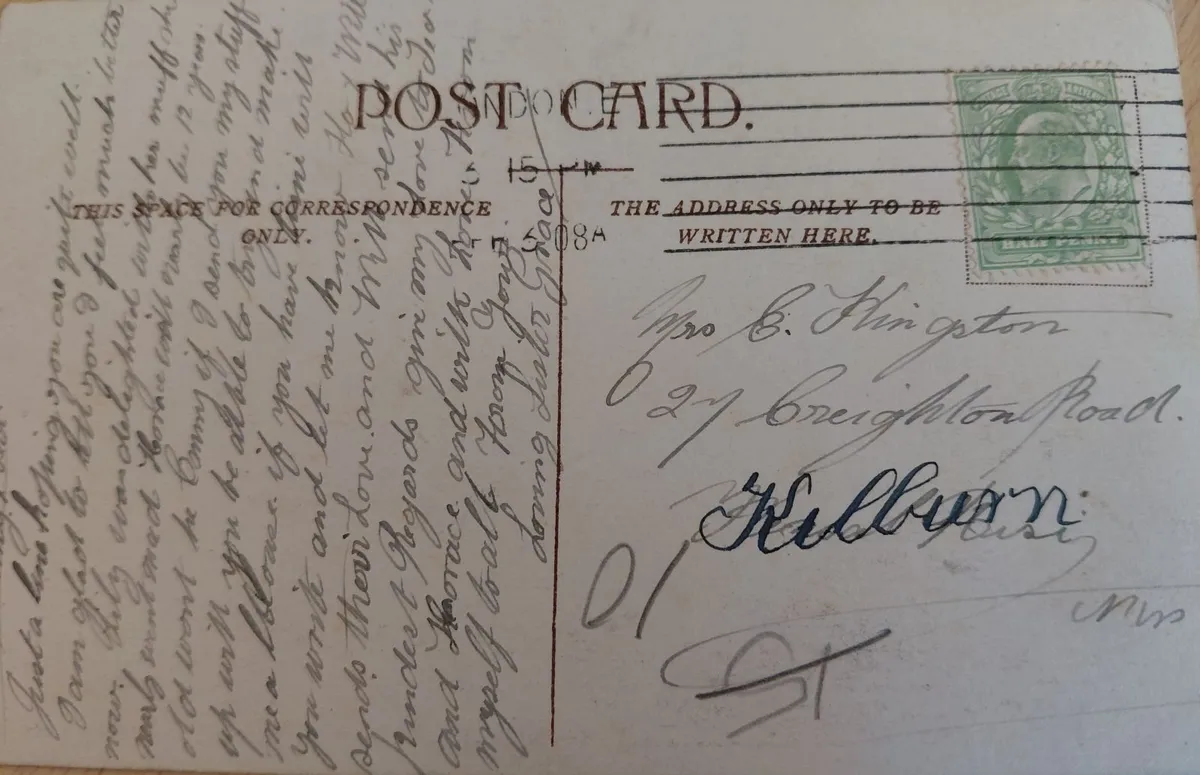 POST CARD.
THIS SPACE FOR CORRESPONDENCE
ONLY.
THE ADDRESS ONLY TO BE
WRITTEN HERE.
LONDON
5 15 PM
5 08A
HALF PENNY
Mrs E. Kingston
27 Creighton Road.
Kilburn
Mrs
Just a line hoping you are quite well.
I am glad to tell you I feel much better
now. July was delighted with her muff she
nearly went mad Horace will be 12 years
old wont he Conny if I send you my stuff
up will you be able to try and make
me a blouse if you have time will
you write and let me know Flo & Will
sends their Love and Will sends his
kindest Regards give my love to
and Horace and with love from
myself to all from Your
Loving Sister Grace